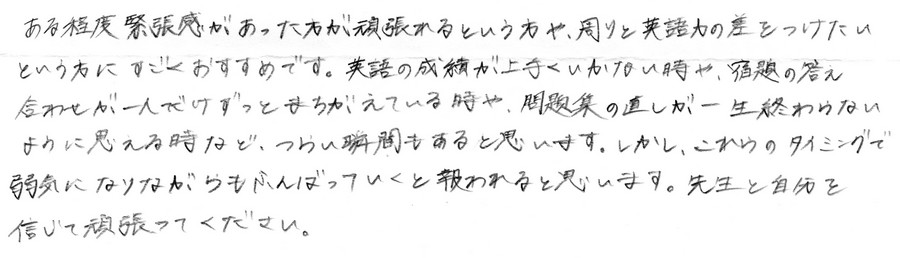 ある程度緊張感があった方が頑張れるという方や、周りと英語力の差をつけたい
という方にすごくおすすめです。英語の成績が上手くいかない時や、宿題の答え
合わせが一人だけずっとまちがえている時や、問題集の直しが一生終わらない
ように思える時など、つらい瞬間もあると思います。しかし、これらのタイミングで
弱気になりながらもふんばっていくと報われると思います。先生と自分を
信じて頑張ってください。